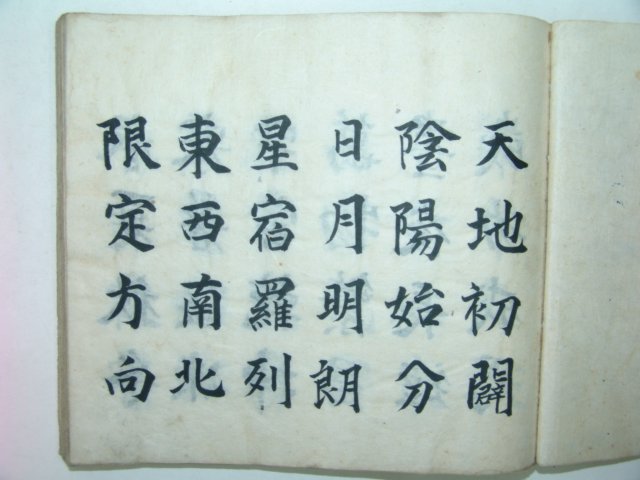 天地初闢
陰陽始分
日月明朗
星宿羅列
東西南北
限定方向